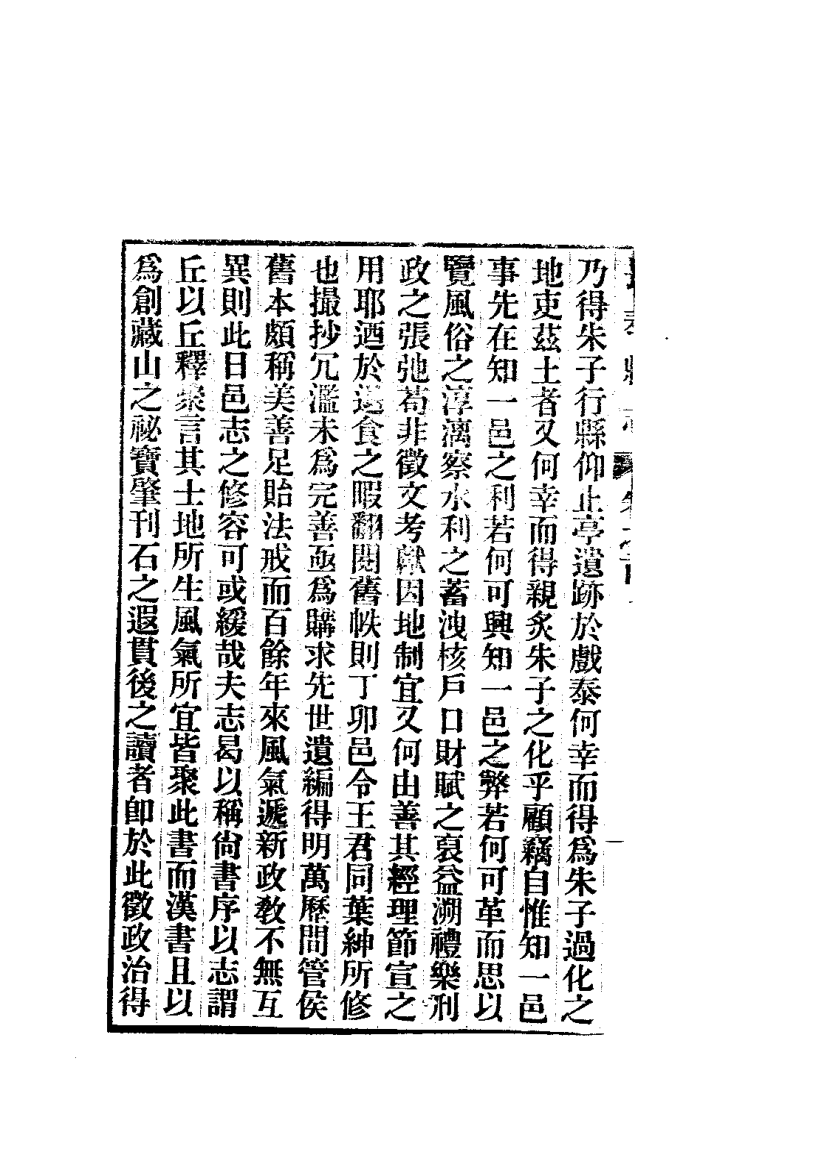 乃得朱子行縣仰止亭遺跡於戲泰何幸而得爲朱子過化之
地吏茲土者又何幸而得親炙朱子之化乎顧竊自惟知一邑
事先在知一邑之利若何可興知一邑之弊若何可革而思以
覽風俗之淳漓察水利之蓄洩核戶口財賦之裒益溯禮樂刑
政之張弛苟非徵文考獻因地制宜又何由善其經理節宣之
用耶迺於退食之暇翻閱舊帙則丁卯邑令王君同葉紳所修
也撮抄冗濫未爲完善亟爲購求先世遺編得明萬歷間管侯
舊本頗稱美善足貽法戒而百餘年來風氣遞新政敎不無互
異則此日邑志之修容可或緩哉夫志曷以稱尙書序以志謂
丘以丘釋聚言其土地所生風氣所宜皆聚此書而漢書且以
爲創藏山之祕寶肇刊石之遐貫後之讀者卽於此徵政治得